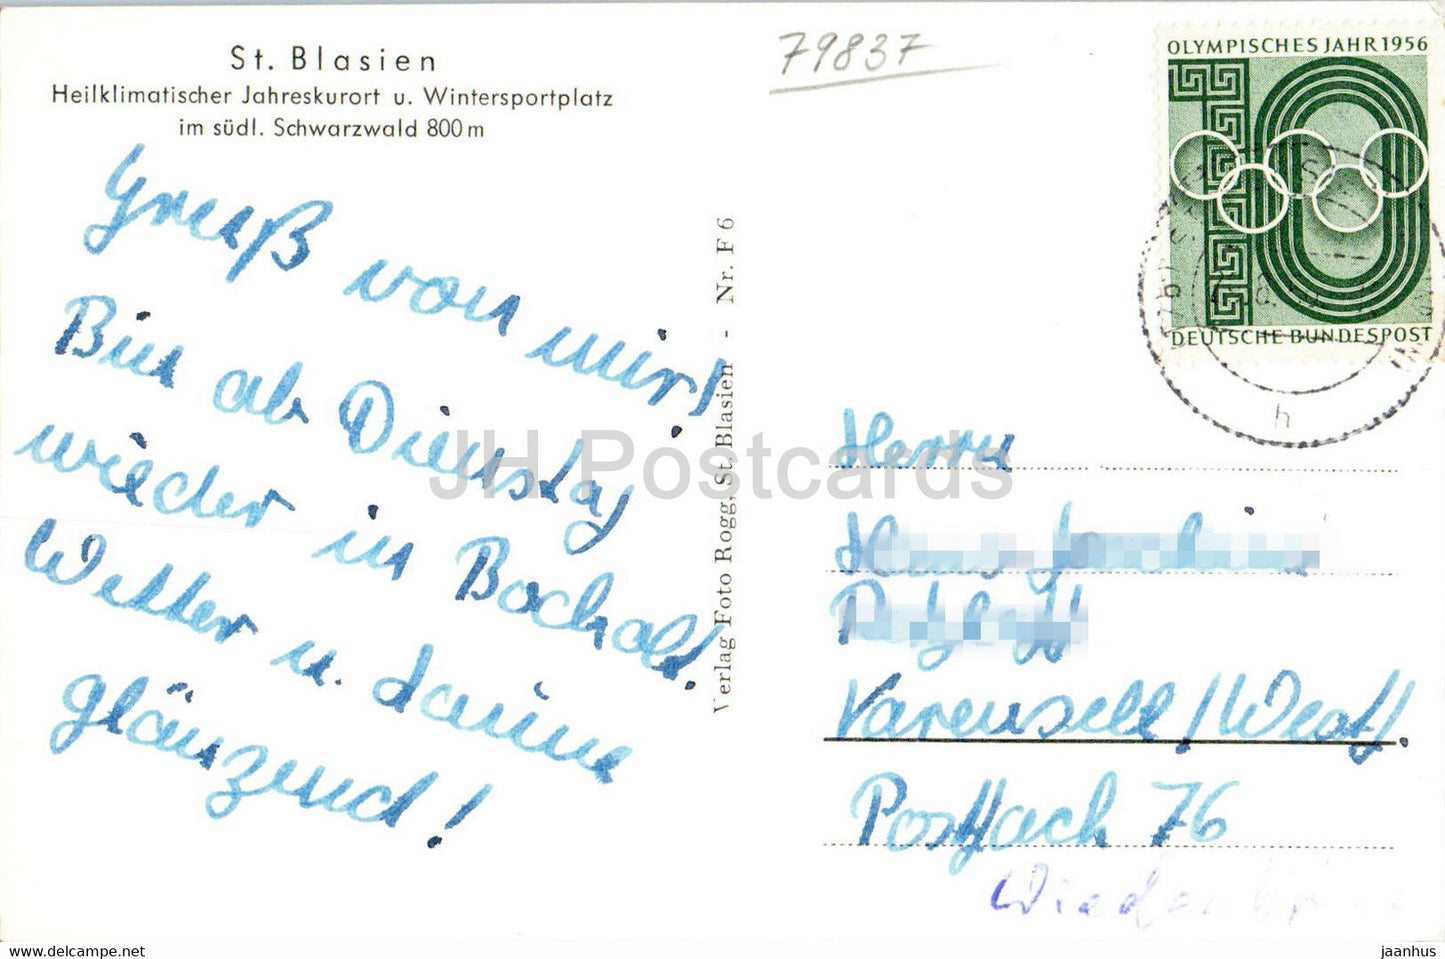 St. Blasien
Heilklimatischer Jahreskurort u. Wintersportplatz
im südl. Schwarzwald 800 m
Gruß von mir!
Bin ab Dienstag
wieder in Bocholt.
Wetter u. Laune
glänzend!
Verlag Foto Rogg, St. Blasien - Nr. F 6
79837
OLYMPISCHES JAHR 1956
DEUTSCHE BUNDESPOST
h
Herrn
Varensell/Westf.
Postfach 76
JH Postcards
hippostcard.com
jaanhus